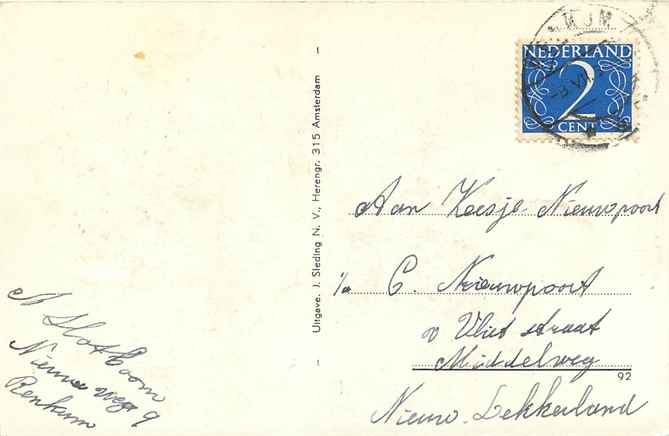 NEDERLAND
2
CENT
Uitgave. J. Sleding N. V., Herengr. 315 Amsterdam
Aan Keesje Nieuwpoort
C. Nieuwpoort
v Vliet straat
Middelweg
92
Nieuw-Lekkerland
Slotboom
Nieuwe weg 9
Renkum